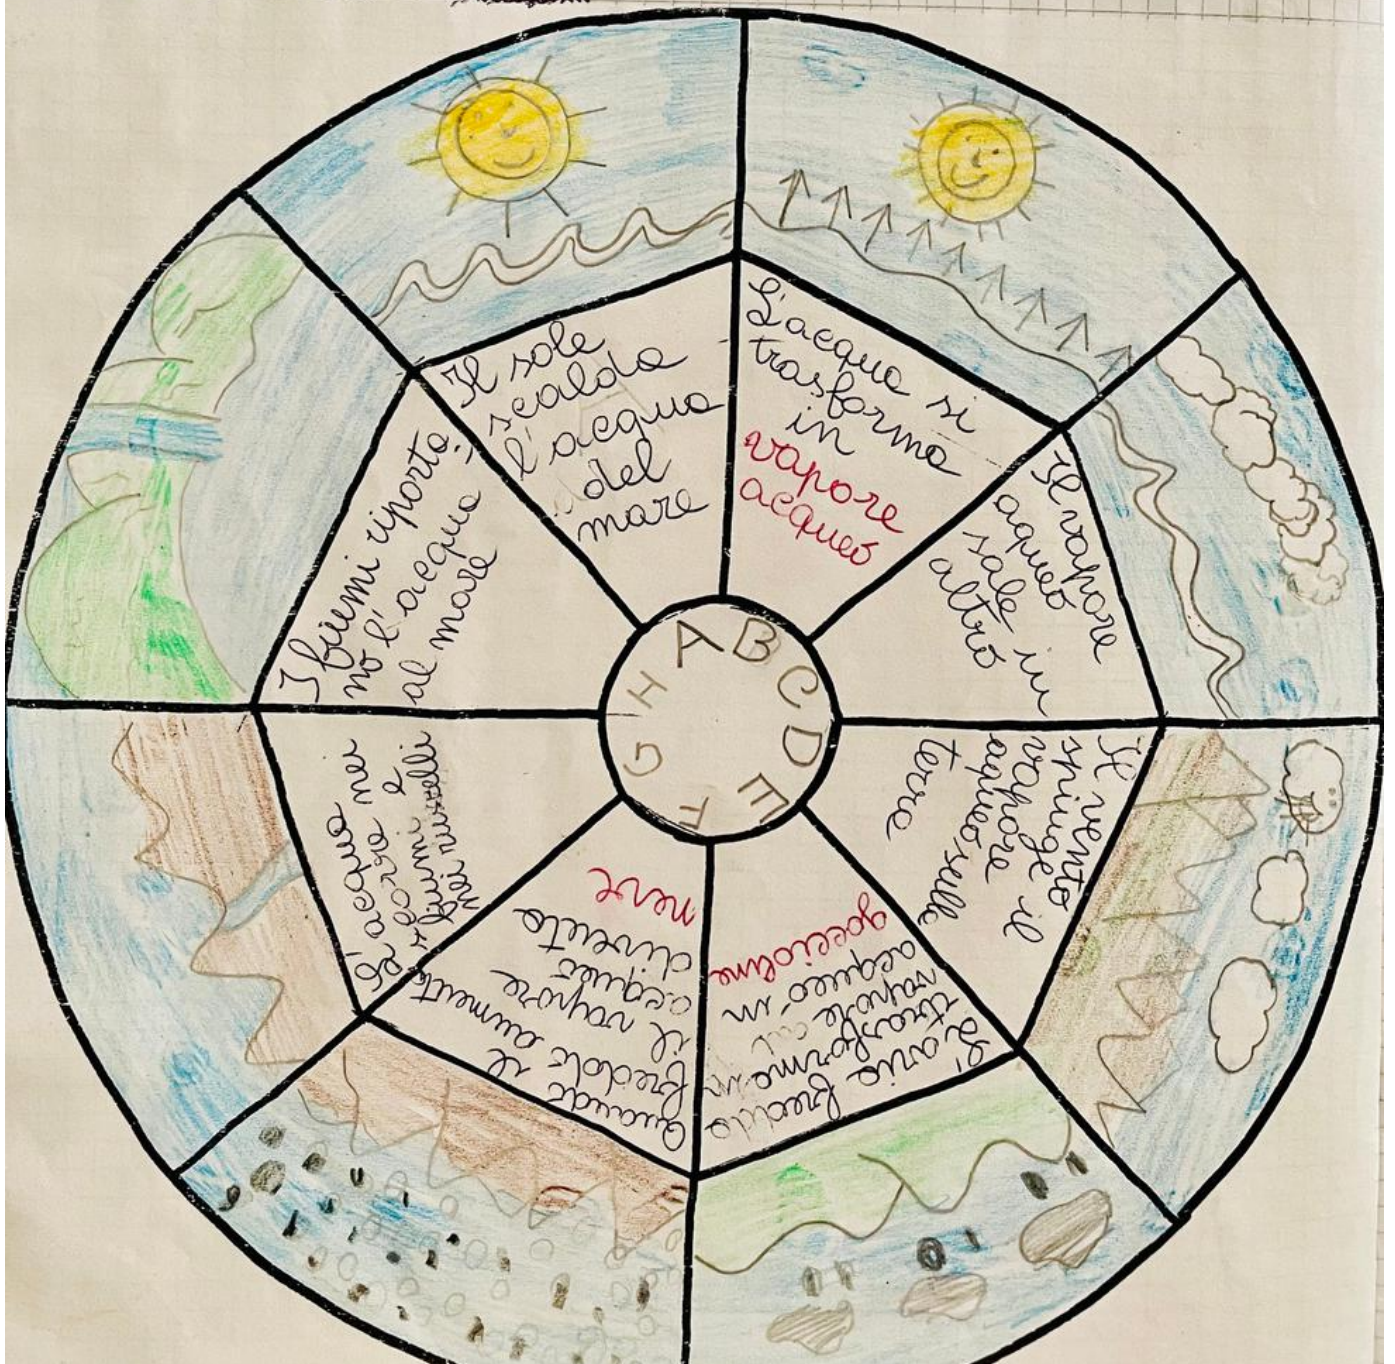 Il sole
scalda
l'acqua
del
mare
L'acqua si
trasforma
in
vapore
acqueo
Il vapore
aqueo
sale in
altro
Il vento
spiunge il
vapore
aqueo sulle
terre
L'aria fredda
trasforma
vapore
acqueo in
goccioline
Quando il
freddo aumenta
il vapore
acqueo
diventa
neve
L'acqua
scorre nei
fiumi e
nei ruscelli
I fiumi riporta
no l'acqua
al mare
A
B
C
D
E
F
G
H